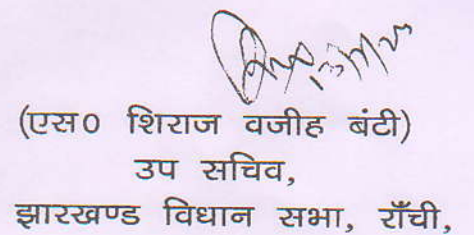 (एस0 शिराज वजीह बंटी)
उप सचिव,
झारखण्ड विधान सभा, राँची,